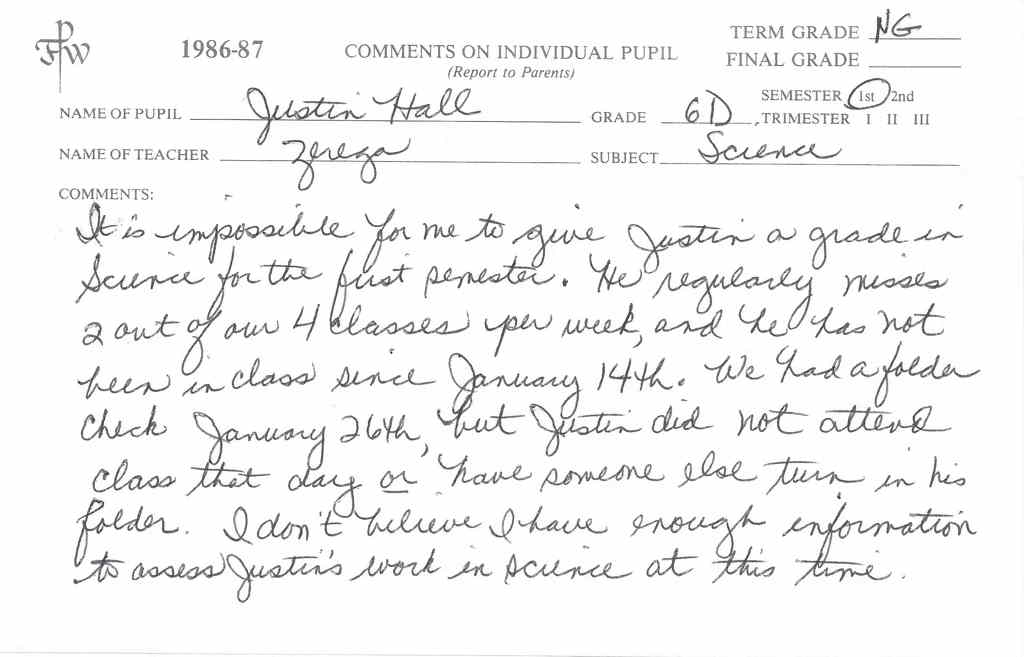 FPW
1986-87
COMMENTS ON INDIVIDUAL PUPIL
(Report to Parents)
TERM GRADE NG
FINAL GRADE
SEMESTER 1st 2nd
NAME OF PUPIL Justin Hall GRADE 6D , TRIMESTER I II III
NAME OF TEACHER Zerega SUBJECT Science
COMMENTS:
It is impossible for me to give Justin a grade in
Science for the first semester. He regularly misses
2 out of our 4 classes per week, and he has not
been in class since January 14th. We had a folder
check January 26th, but Justin did not attend
class that day or have someone else turn in his
folder. I don't believe I have enough information
to assess Justin's work in science at this time.